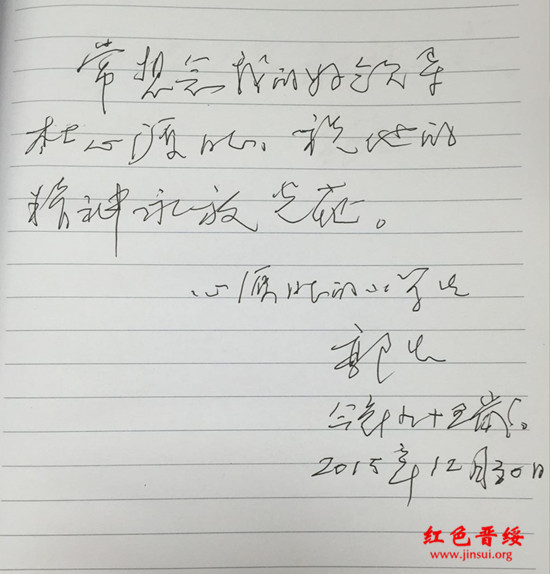 常想念我的好领导
杜心源同志、祝他的
精神永放光芒。
心源同志的小学生
郭生
今年九十五岁。
2015年12月30日
红色晋绥
www.jinsui.org